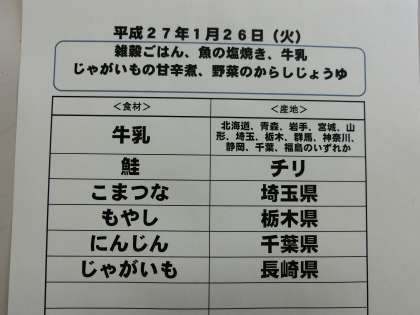 平成２７年１月２６日（火）
雑穀ごはん、魚の塩焼き、牛乳
じゃがいもの甘辛煮、野菜のからしじょうゆ
＜食材＞ ＜産地＞
牛乳 北海道、青森、岩手、宮城、山
形、埼玉、栃木、群馬、神奈川、
静岡、千葉、福島のいずれか
鮭 チリ
こまつな 埼玉県
もやし 栃木県
にんじん 千葉県
じゃがいも 長崎県